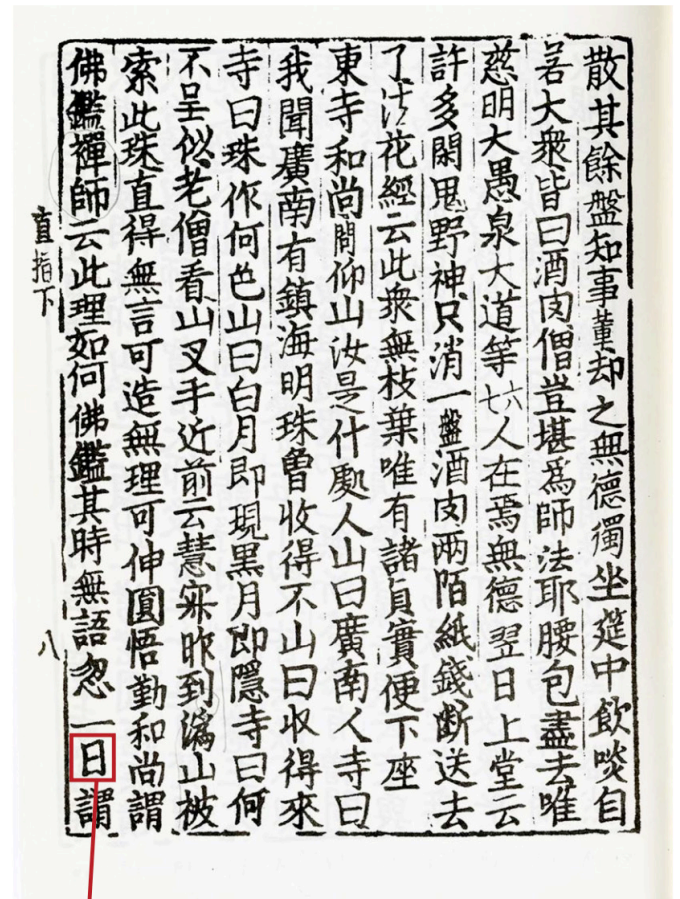 散其餘盤知事董却之無德獨坐筵中飲啖自
若大衆皆曰酒肉僧豈堪爲師法耶腰包盡去唯
慈明大愚泉大道等六七人在焉無德翌日上堂云
許多閑鬼野神只消一盤酒肉兩陌紙錢断送去
了法花經云此衆無枝葉唯有諸貞實便下座
東寺和尚問仰山汝是什處人山曰廣南人寺曰
我聞廣南有鎮海明珠曾收得不山曰收得來
寺曰珠作何色山曰白月即現黑月即隱寺曰何
不呈似老僧看山叉手近前云慧寂昨到潙山被
索此珠直得無言可造無理可伸圓悟勤和尚謂
佛鑑禪師云此理如何佛鑑其時無語忽一日謂
直指下
八